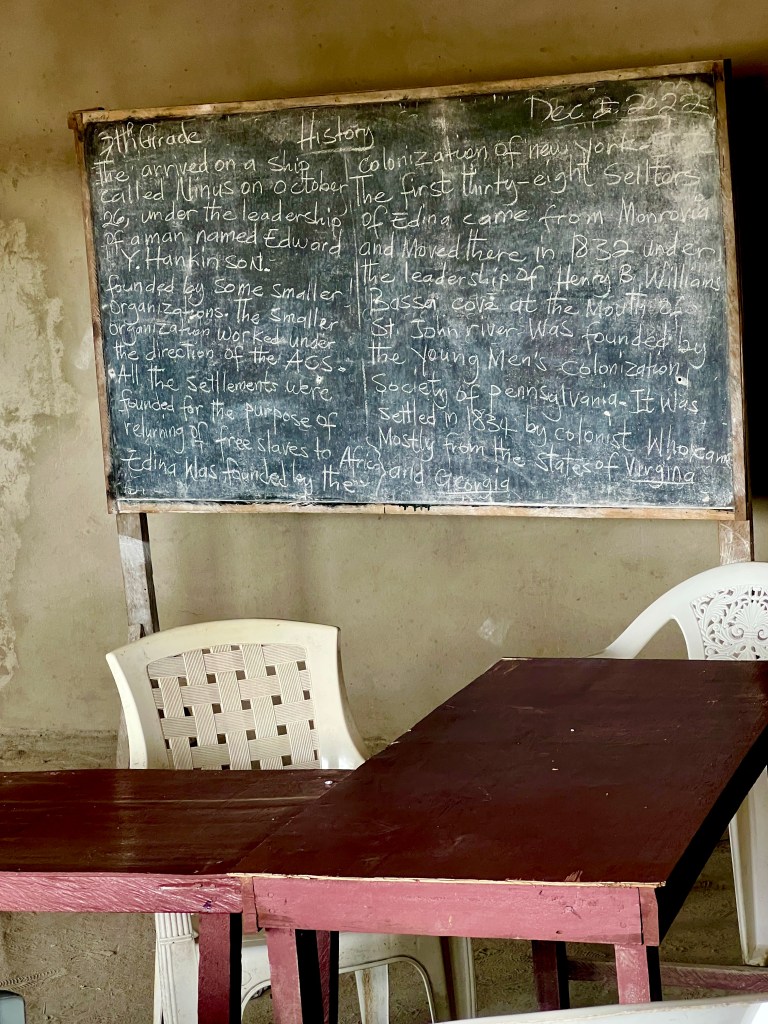 7thGrade History Dec 5, 2022
the arrived on a ship
called Ninus on october
26, under the leadership
of a man named Edward
Y. Hankinson.
founded by some smaller
organizations. The smaller
organization worked under
the direction of the ACS.
All the settlements were
founded for the purpose of
returning of free slaves to Africa
Edina was founded by the
colonization of new york
The first thirty-eight Selltors
of Edina came from Monrovia
and Moved there in 1832 under
the leadership of Henry B, Williams
Bassa cove at the Mouth of
St. John river. Was founded by
the Young Men's colonization
Society of pennsylvania. It was
settled in 1834 by colonist Who came
Mostly from the states of Virgina
and Georgia